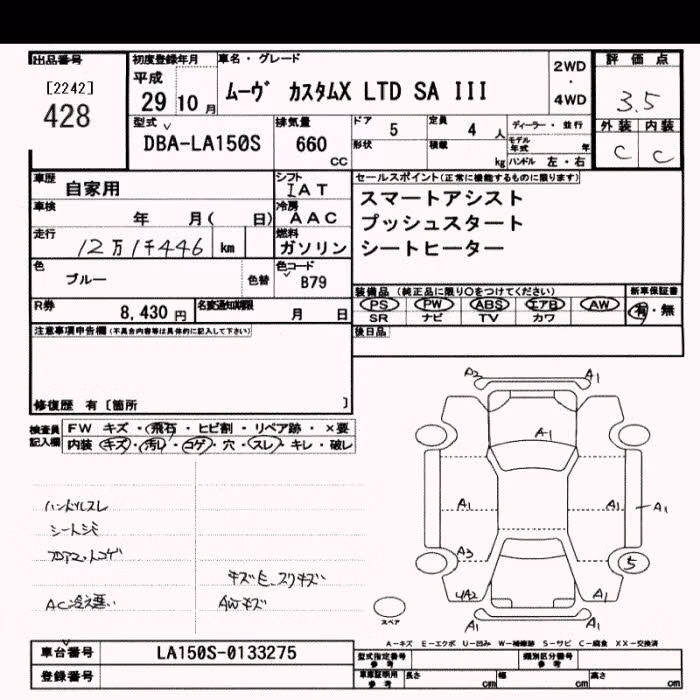 出品番号
[2242]
428
初度登録年月
平成
29 10 月
車名・グレード
ムーヴ カスタムX LTD SA III
2WD
・
4WD
評価点
3.5
型式
DBA-LA150S
排気量
660 cc
ドア 5
定員 4 人
形状
積載 kg
ディーラー・並行
モデル年式 年
ハンドル 左・右
外装 内装
C C
車歴 自家用
シフト IAT
車検 年 月( 日)
冷房 AAC
走行 12万1千446 km
燃料 ガソリン
セールスポイント(正常に機能するものに限ります)
スマートアシスト
プッシュスタート
シートヒーター
色 ブルー 色替
色コード B79
R券 8,430 円
名変通知期限 月 日
装備品 (純正品に限り○をつけてください)
新車保証書
PS PW ABS エアB AW
有・無
SR ナビ TV カワ
後日品
注意事項申告欄(不具合内容等は具体的に記入して下さい)
修復歴 有〔箇所 〕
検査員記入欄
FW キズ・飛石・ヒビ割・リペア跡・×要
内装 キズ・汚れ・コゲ・穴・スレ・キレ・破レ
ハンドルスレ
シートシミ
フロアマットコゲ
キズE、スリキズ
AC冷え悪い
AWキズ
A1
A1
A1
A1
A1
A3
5
A1
A1
A1
スペア
A-キズ E-エクボ U-凹み W-補修跡 S-サビ C-腐食 XX-交換済
車台番号 LA150S-0133275
登録番号
型式指定番号 参考
類別区分番号 参考
車庫証明用 参考
長さ cm
幅 cm
高さ cm